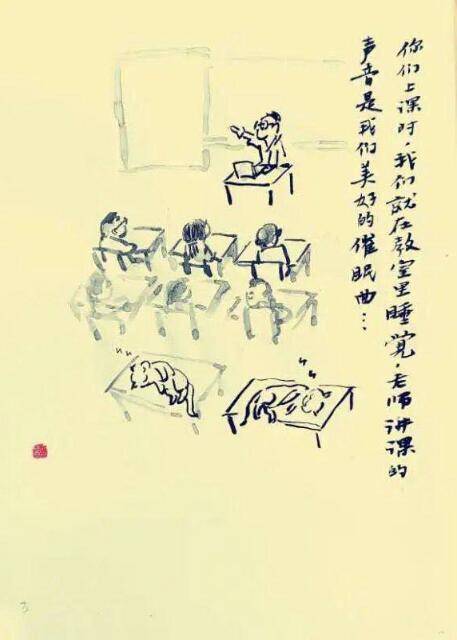 你们上课时，我们就在教室里睡觉，老师讲课的
声音是我们美好的催眠曲…
z z
z z
3